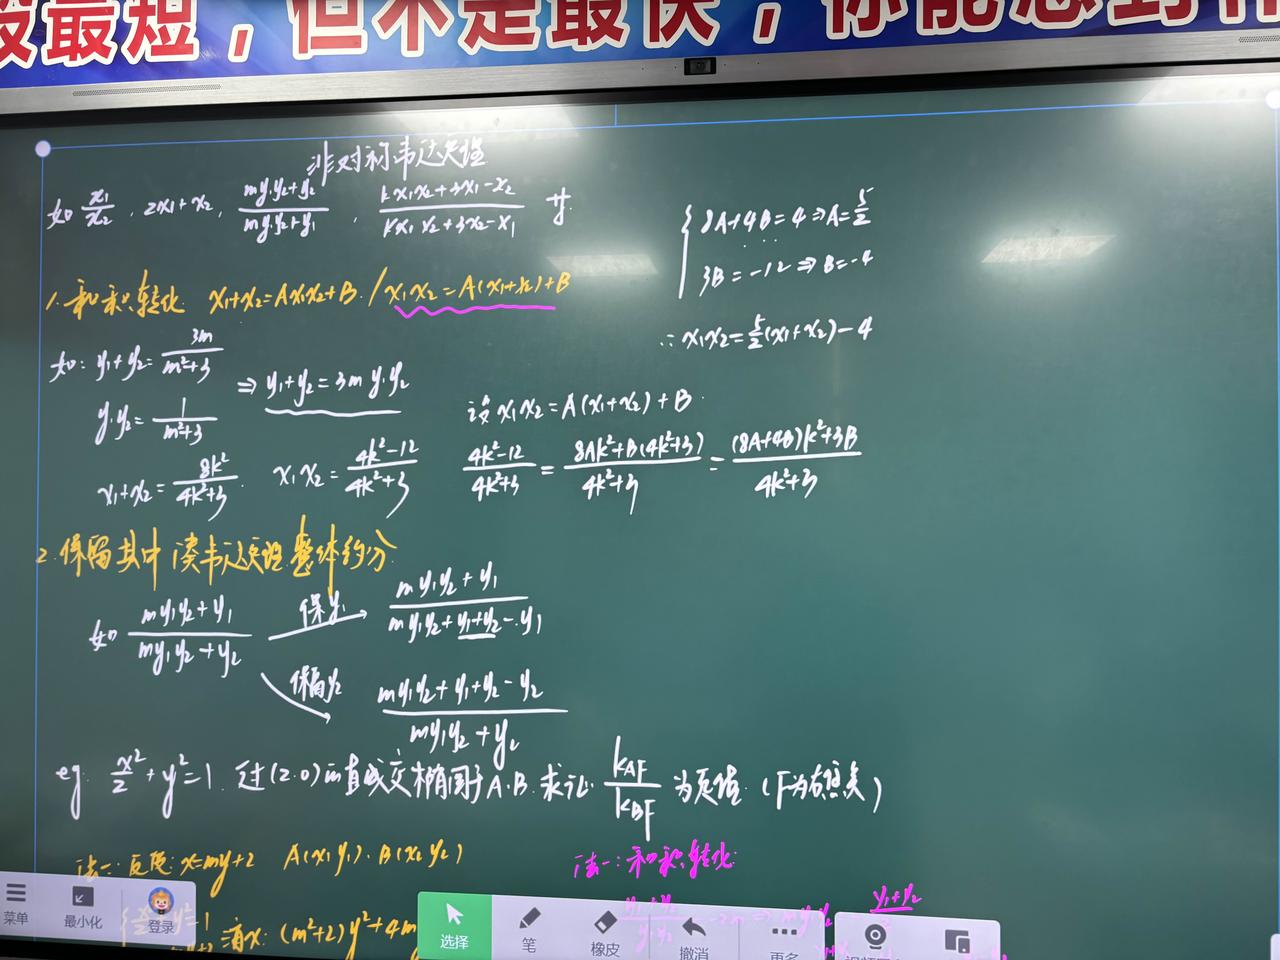 最短，但不是最快，你能想到
非对称韦达定理
如 x₁/x₂ , 2x₁+x₂ , (my₁y₂+y₂)/(my₁y₂+y₁) , (kx₁x₂+3x₁-x₂)/(kx₁x₂+3x₂-x₁) 等
1. 和积转化 x₁+x₂=Ax₁x₂+B / x₁x₂=A(x₁+x₂)+B
如: y₁+y₂=3m/(m²+3)
y₁y₂=1/(m²+3)
⇒ y₁+y₂=3my₁y₂
x₁+x₂=8k²/(4k²+3) . x₁x₂=(4k²-12)/(4k²+3)
设 x₁x₂=A(x₁+x₂)+B.
(4k²-12)/(4k²+3) = (8Ak²+B(4k²+3))/(4k²+3) = ((8A+4B)k²+3B)/(4k²+3)
{ 8A+4B=4 ⇒ A=5/2
3B=-12 ⇒ B=-4
∴ x₁x₂=5/2(x₁+x₂)-4
2. 保留其中 凑韦达定理 整体约分
如 (my₁y₂+y₁)/(my₁y₂+y₂)
保y₁ → (my₁y₂+y₁)/(my₁y₂+y₁+y₂-y₁)
保留y₂ → (my₁y₂+y₁+y₂-y₂)/(my₁y₂+y₂)
eg. x²/2+y²=1. 过(2.0)的直线交椭圆于A.B. 求证: k_AF/k_BF 为定值. (F为右焦点)
法一: 反设: x=my+2 A(x₁y₁). B(x₂y₂)
消x: (m²+2)y²+4m
法一: 和积转化:
菜单
最小化
登录
选择
笔
橡皮
撤消
更多